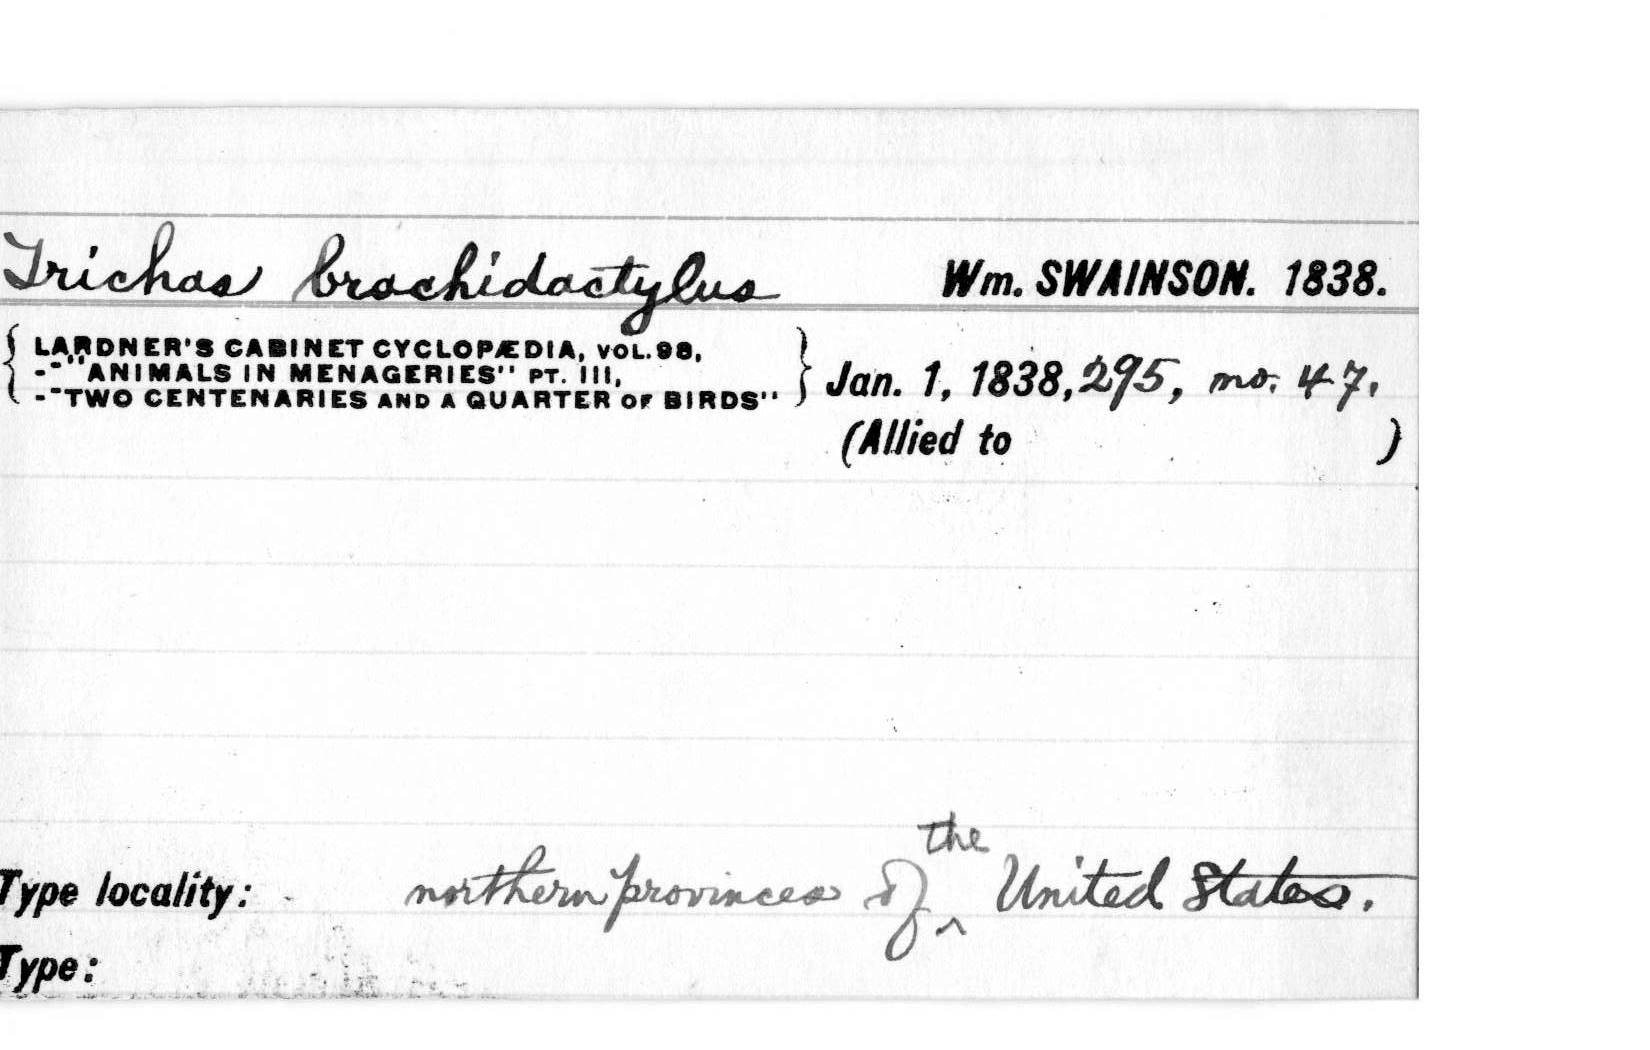 Trichas brachidactylus Wm. SWAINSON. 1838.
{ LARDNER'S CABINET CYCLOPÆDIA, VOL. 98,
-"ANIMALS IN MENAGERIES" PT. III,
-"TWO CENTENARIES AND A QUARTER OF BIRDS" } Jan. 1, 1838, 295, no. 47.
(Allied to )
Type locality: northern provinces of ^the United States.
Type: